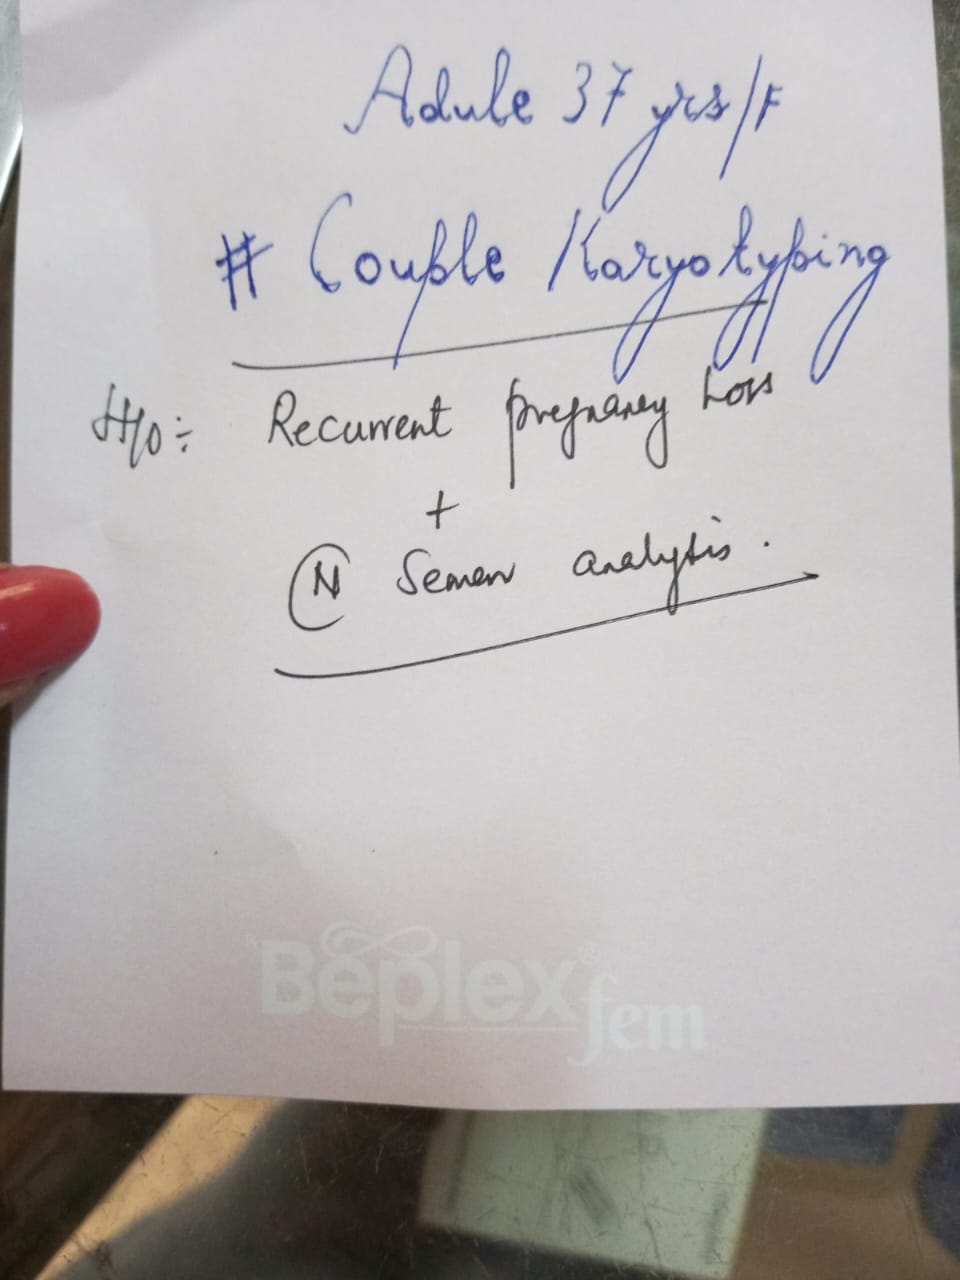 Adule 37 yrs/F
# Couple Karyotyping
H/o:- Recurrent pregnancy Loss
+
(N) Semen analysis.
Beplex® fem